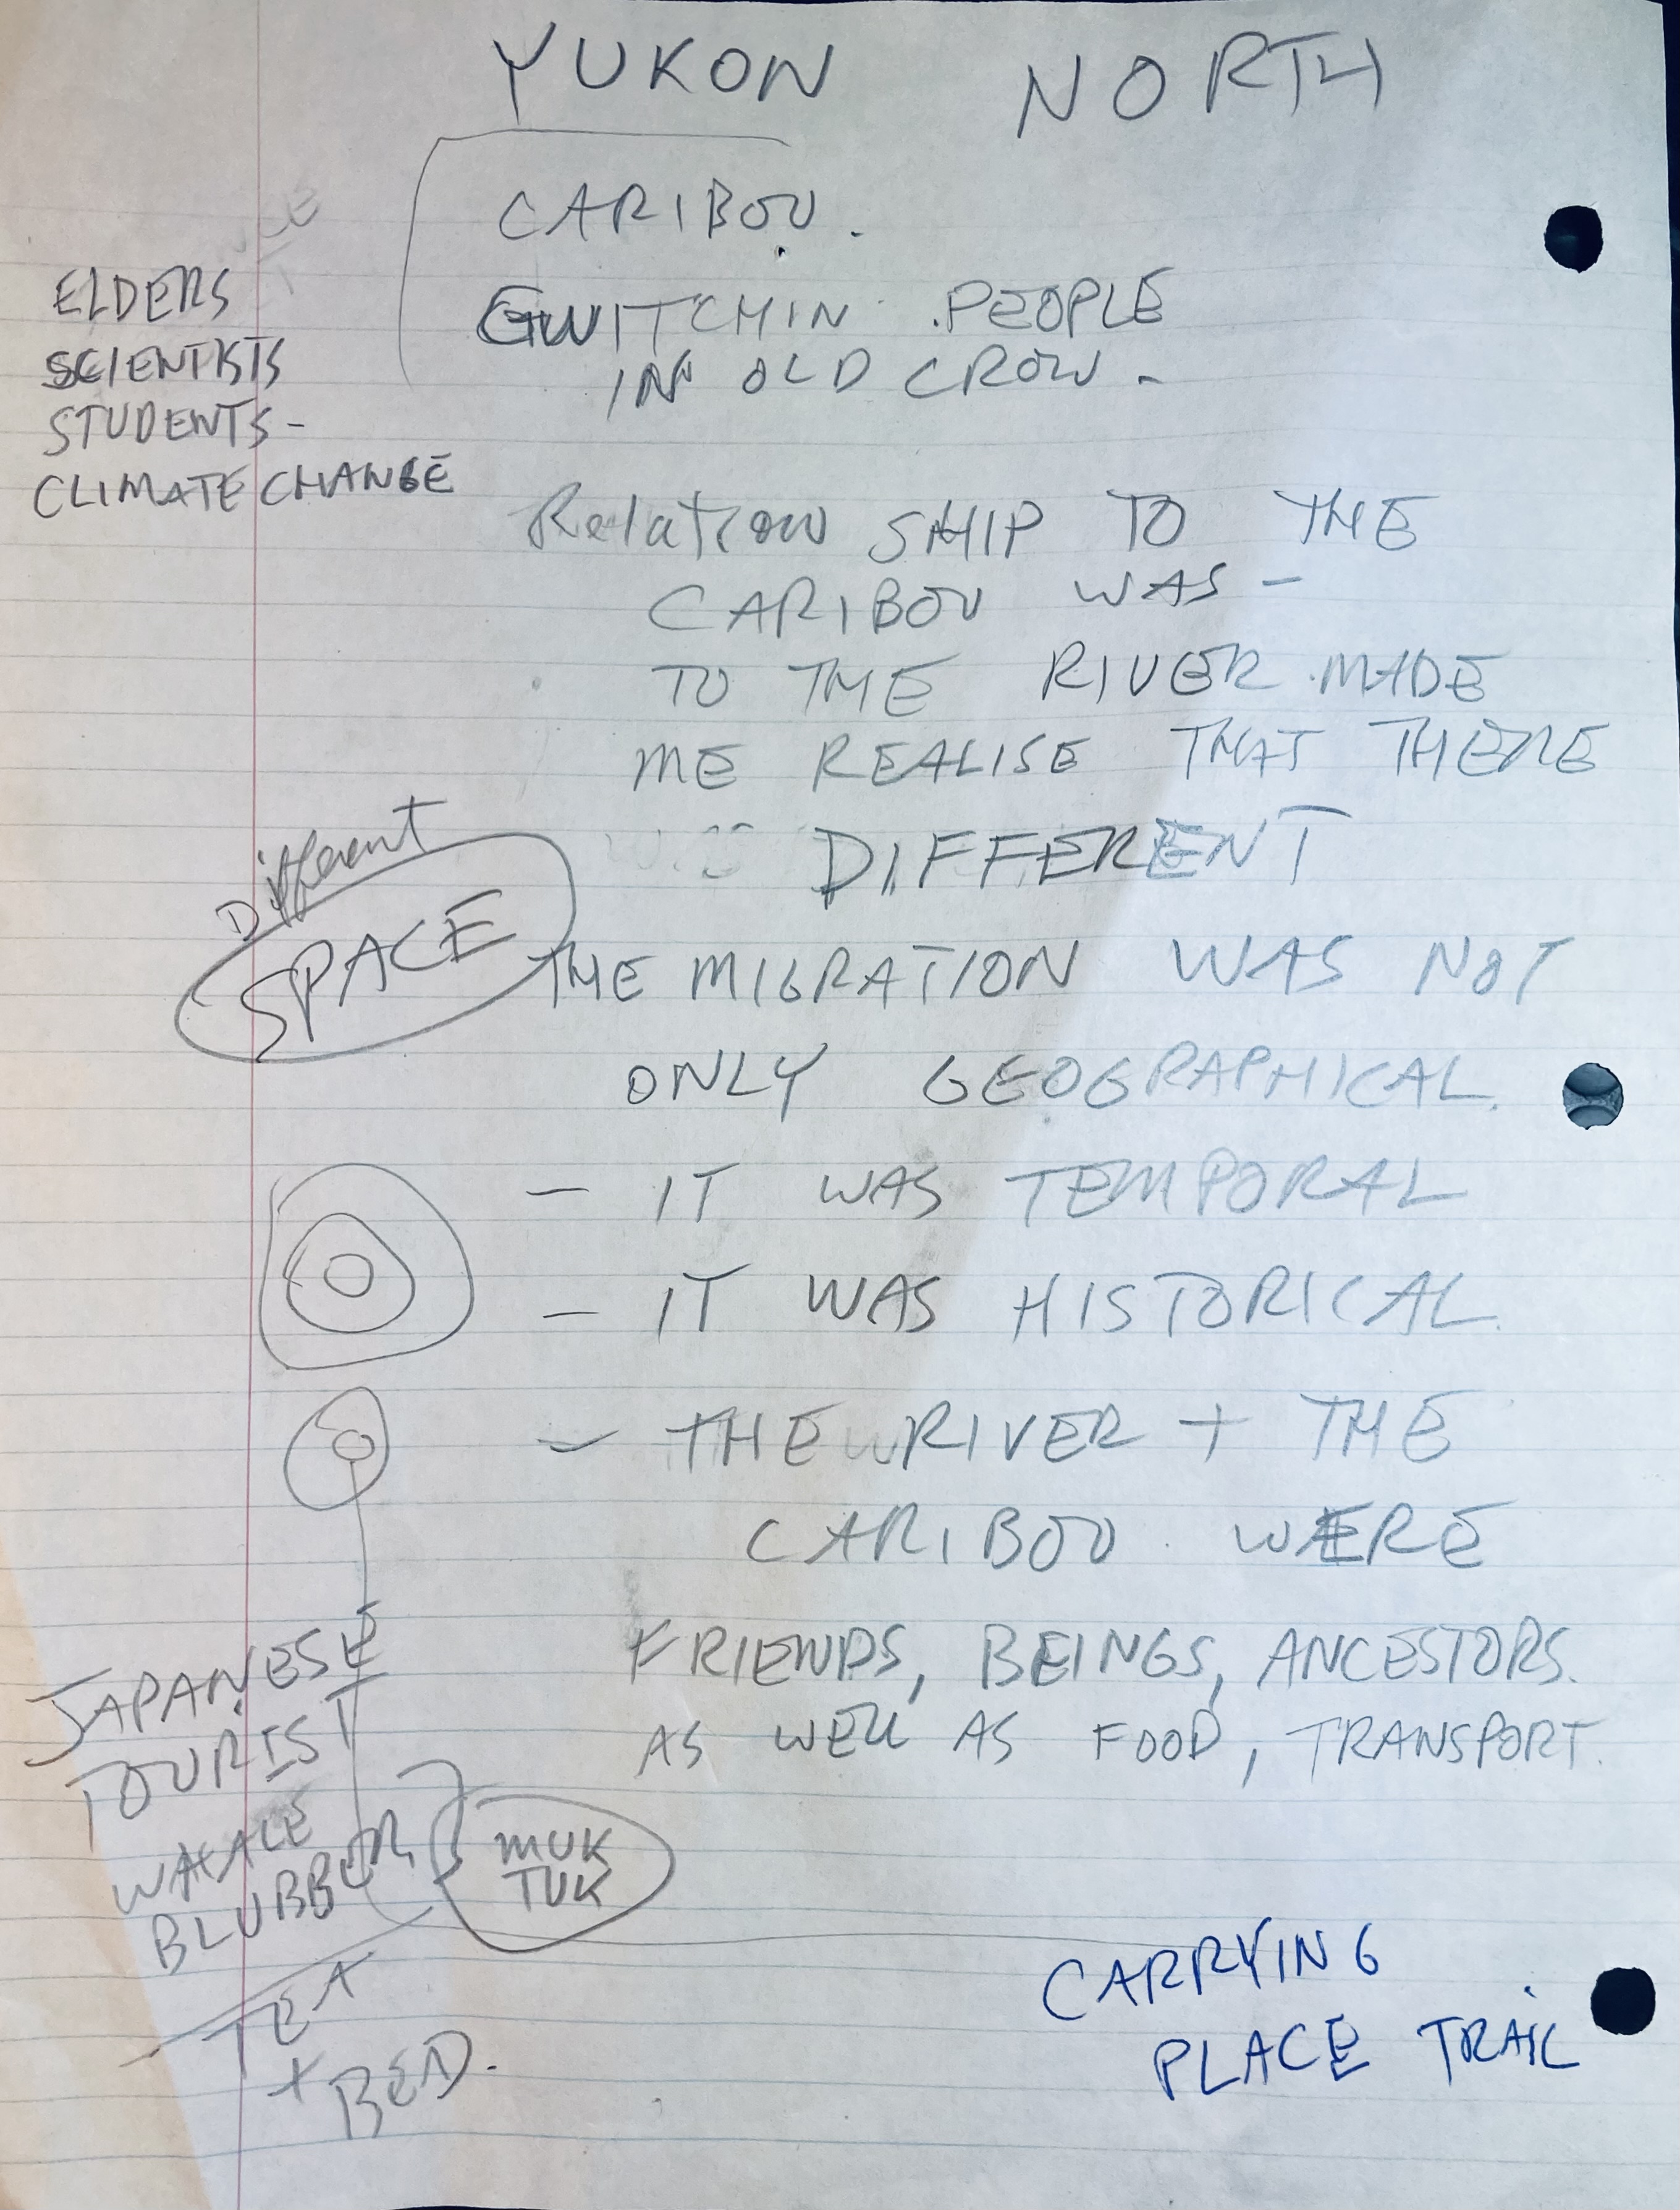 YUKON NORTH
CARIBOU.
GWITCHIN PEOPLE
IN OLD CROW -
ELDERS
SCIENTISTS
STUDENTS -
CLIMATE CHANGE
Relation SHIP TO THE
CARIBOU WAS -
TO THE RIVER MADE
ME REALISE THAT THERE
DIFFERENT
Different
SPACE
THE MIGRATION WAS NOT
ONLY GEOGRAPHICAL.
- IT WAS TEMPORAL
- IT WAS HISTORICAL.
- THE RIVER + THE
CARIBOU WERE
FRIENDS, BEINGS, ANCESTORS.
AS WELL AS FOOD, TRANSPORT.
JAPANESE
TOURIST
WHALE
BLUBBER
MUK
TUK
TEA
+ BED.
CARRYING
PLACE TRAIL